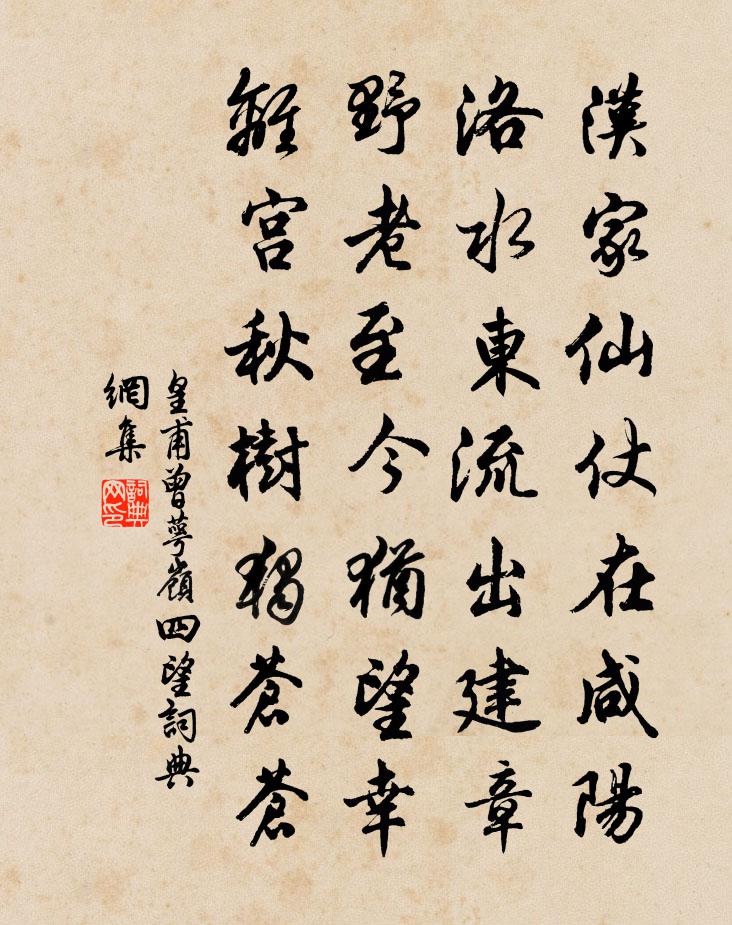 漢家仙仗在咸陽
洛水東流出建章
野老至今猶望幸
離宮秋樹獨蒼蒼
皇甫曾萼嶺四望詞典
網集
詞典
网印